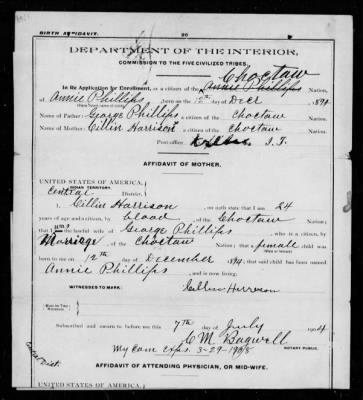 BIRTH AFFIDAVIT.
DEPARTMENT OF THE INTERIOR,
COMMISSION TO THE FIVE CIVILIZED TRIBES.
Choctaw
In the Application for Enrollment, as a citizen of the Annie Phillips Nation,
of Annie Phillips, born on the 12th day of Decr, 1894
Name of Father: George Phillips a citizen of the Choctaw Nation.
Name of Mother: Cillin Harrison a citizen of the Choctaw Nation.
Post office, I. T.
AFFIDAVIT OF MOTHER.
UNITED STATES OF AMERICA,
INDIAN TERRITORY,
Central District.
I, Cillin Harrison, on oath state that I am 24
years of age and a citizen, by blood of the Choctaw Nation;
that I was the lawful wife of George Phillips, who is a citizen, by
Marriage of the Choctaw Nation; that a female child was
born to me on 12th day of December 1894, that said child has been named
Annie Phillips, and is now living.
WITNESSES TO MARK:
Subscribed and sworn to before me this 7th day of July 1904
C M Bagwell
NOTARY PUBLIC.
My Com exps. 3-29-1908
Central Dist.
AFFIDAVIT OF ATTENDING PHYSICIAN, OR MID-WIFE.
UNITED STATES OF AMERICA,